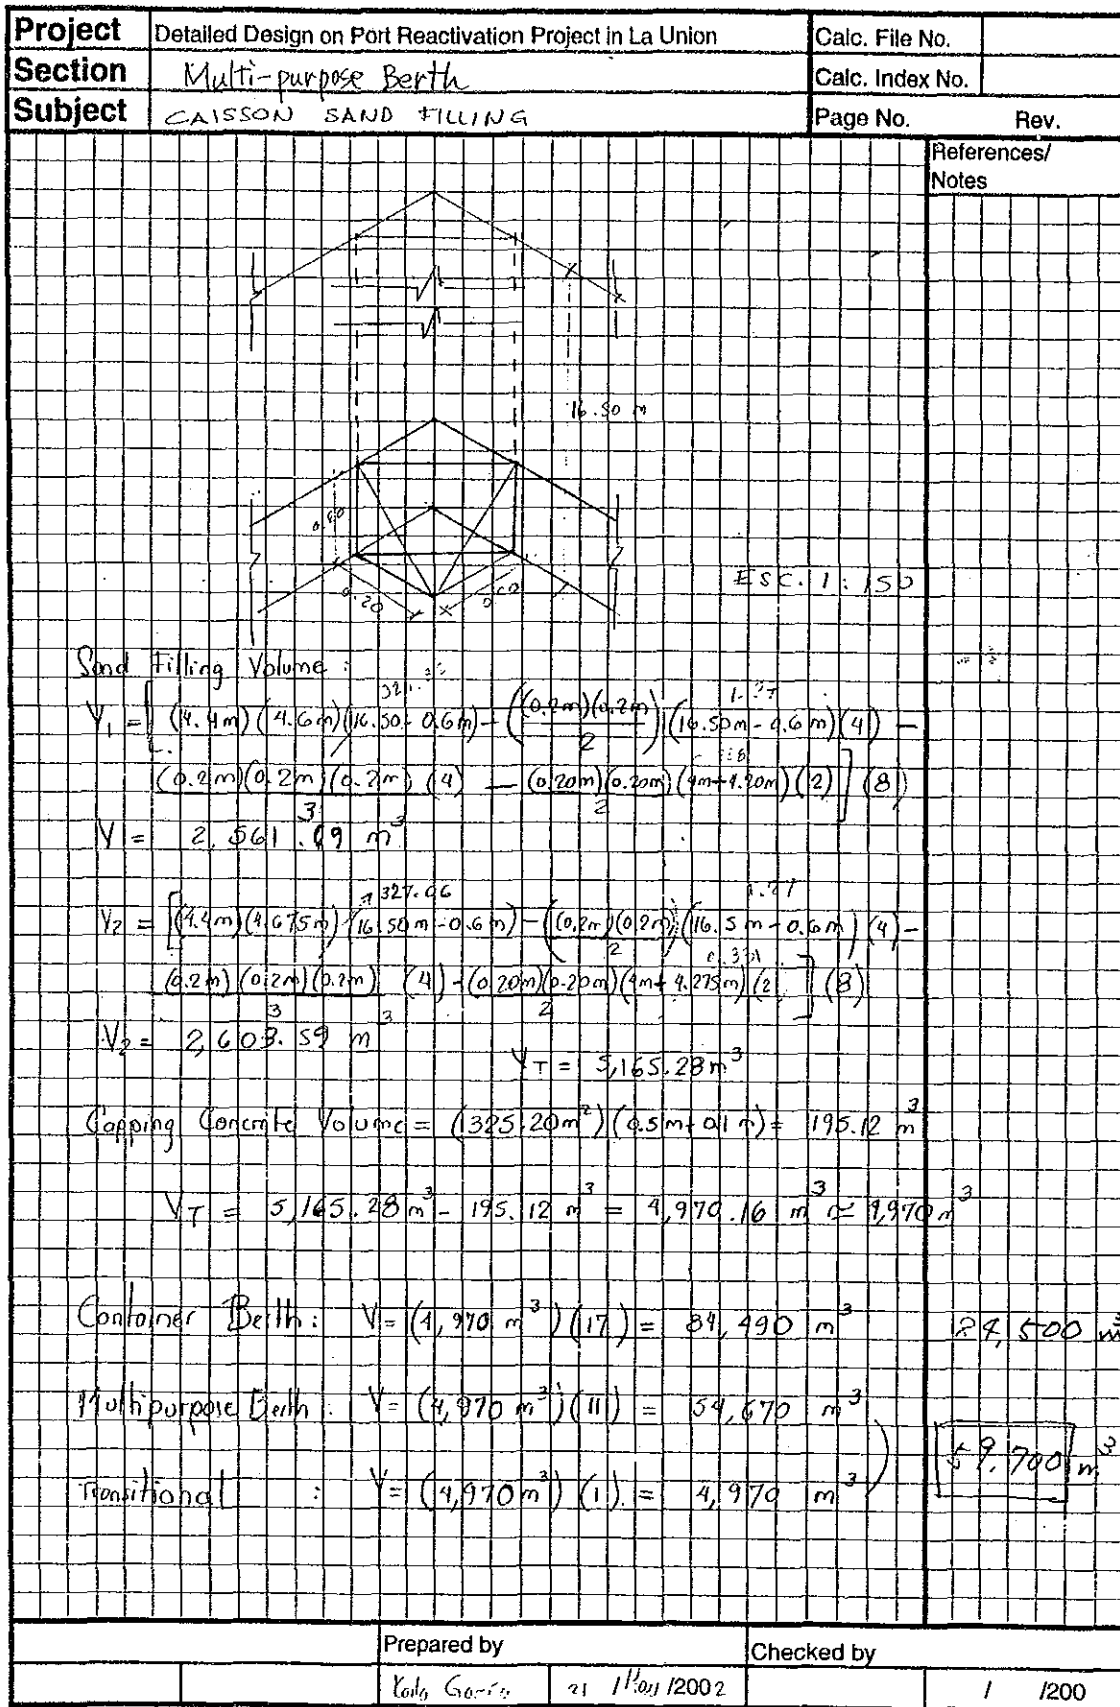 Project Detailed Design on Port Reactivation Project in La Union Calc. File No.
Section Multi-purpose Berth Calc. Index No.
Subject CAISSON SAND FILLING Page No. Rev.
References/
Notes
16.50 m
0.60
0.20 0.60
ESC. 1:150
Sand Filling Volume :
V₁ = [(4.4m)(4.6m)(16.50-0.6m) - ((0.2m)(0.2m)/2)(16.50m-0.6m)(4) -
(0.2m)(0.2m)(0.2m)/3 (4) - (0.20m)(0.20m)/2 (4m+4.20m)(2)] (8)
V = 2,561.69 m³
327.06
V₂ = [(4.4m)(4.675m)(16.50m-0.6m) - ((0.2m)(0.2m)/2)(16.5m-0.6m)(4) -
(0.2m)(0.2m)(0.2m)/3 (4) - (0.20m)(0.20m)/2 (4m+4.275m)(2)] (8)
V₂ = 2,603.59 m³
V_T = 5,165.28 m³
Capping Concrete Volume = (325.20m²)(0.5m+0.1m) = 195.12 m³
V_T = 5,165.28 m³ - 195.12 m³ = 4,970.16 m³ ≃ 4,970 m³
Container Berth : V = (4,970 m³)(17) = 84,490 m³ 84,500 m³
Multipurpose Berth : V = (4,970 m³)(11) = 54,670 m³
59,700 m³
Transitional : V = (4,970 m³)(1) = 4,970 m³
Prepared by Checked by
21 / /2002 / /200